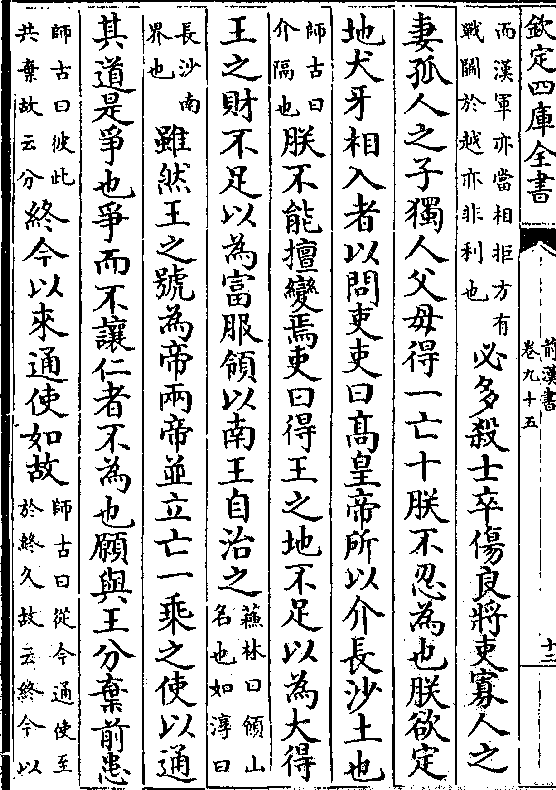 欽定四庫全書
前漢書
卷九十五
十二
而漢軍亦當相拒方有
戰鬭於越亦非利也
必多殺士卒傷良將吏寡人之
妻孤人之子獨人父母得一亡十朕不忍為也朕欲定
地犬牙相入者以問吏吏曰髙皇帝所以介長沙土也
師古曰
介隔也
朕不能擅變焉吏曰得王之地不足以為大得
王之財不足以為富服領以南王自治之
蘇林曰領山
名也如淳曰
長沙南
界也
雖然王之號為帝兩帝並立亡一乘之使以通
其道是爭也爭而不讓仁者不為也願與王分棄前恶
師古曰彼此
共棄故云分
終今以來通使如故
師古曰從今通使至
於終久故云終今以